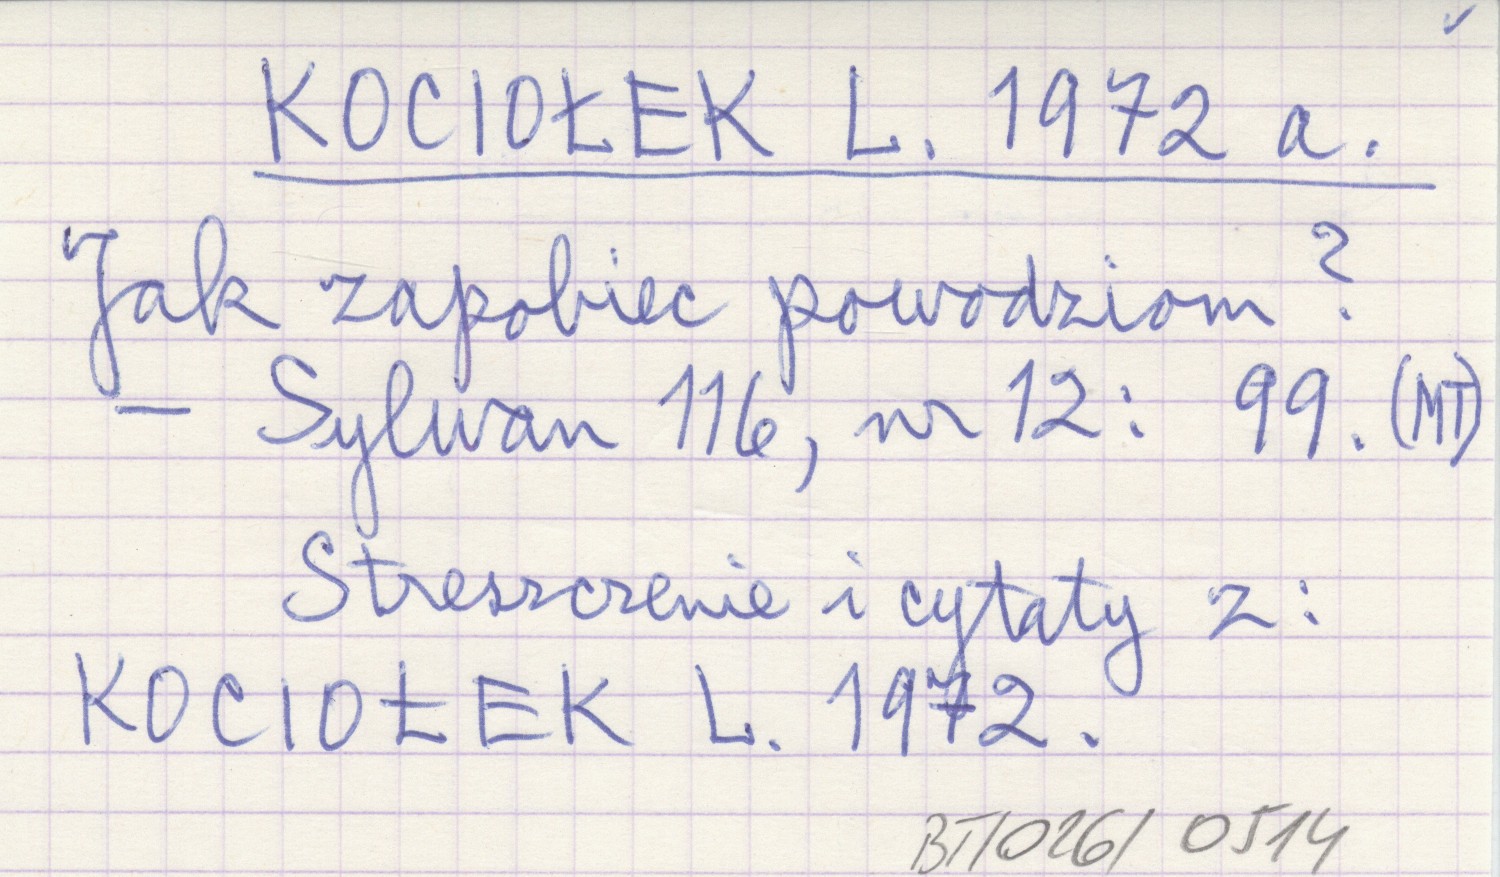 KOCIOŁEK L. 1972 a.
Jak zapobiec powodziom?
— Sylwan 116, nr 12: 99. (MT)
Streszczenie i cytaty z:
KOCIOŁEK L. 1972.
BT/026/ 0514